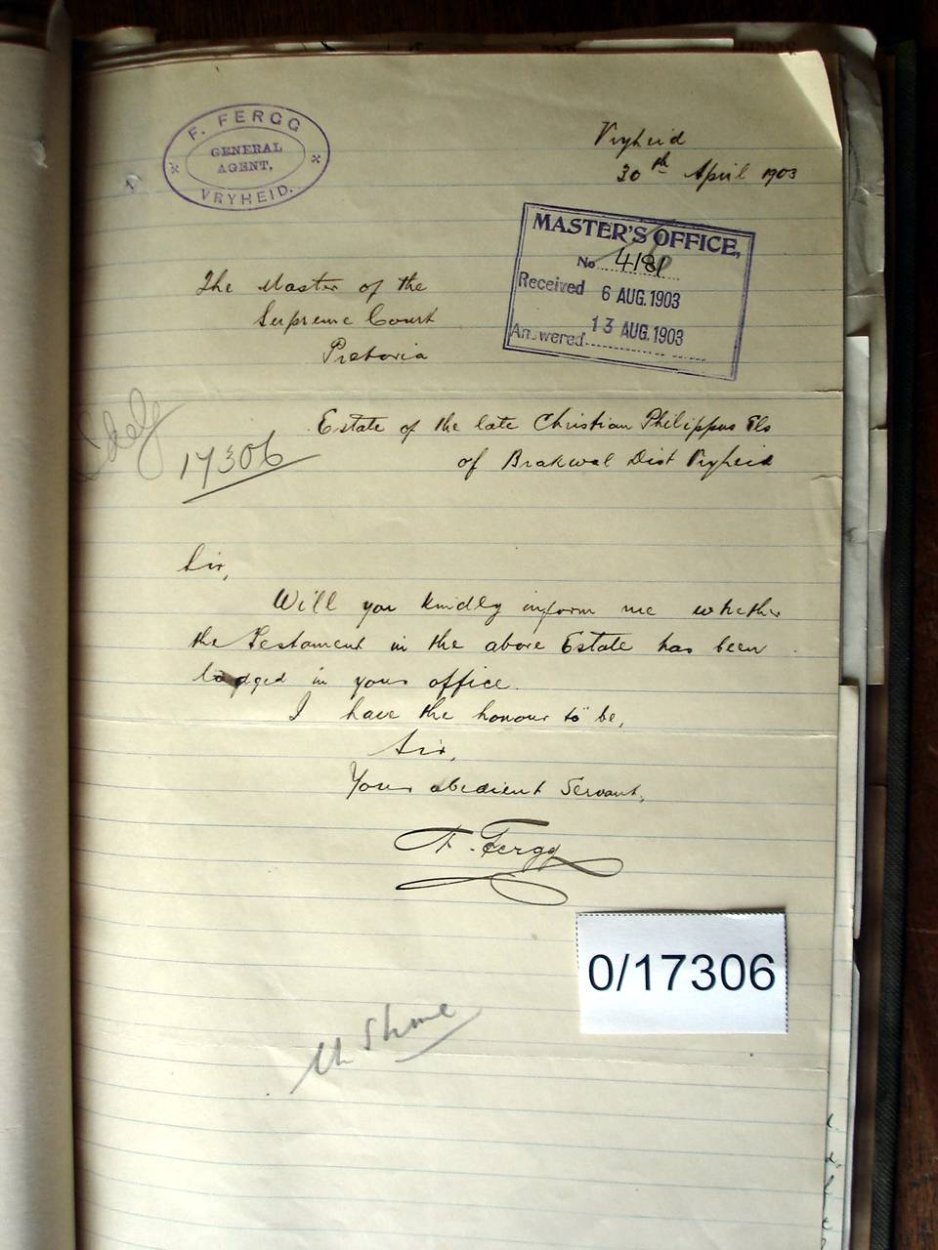 F. FERGG
GENERAL
AGENT.
VRYHEID.
Vryheid
30th April 1903
MASTER'S OFFICE,
No 4181
Received 6 AUG. 1903
Answered 13 AUG. 1903
The Master of the
Supreme Court
Pretoria
17306
Estate of the late Christian Philippus Els
of Brakwal Dist Vryheid
Sir,
Will you kindly inform me whether
the Testament in the above Estate has been
lodged in your office.
I have the honour to be,
Sir,
Your obedient Servant,
F. Fergg
0/17306